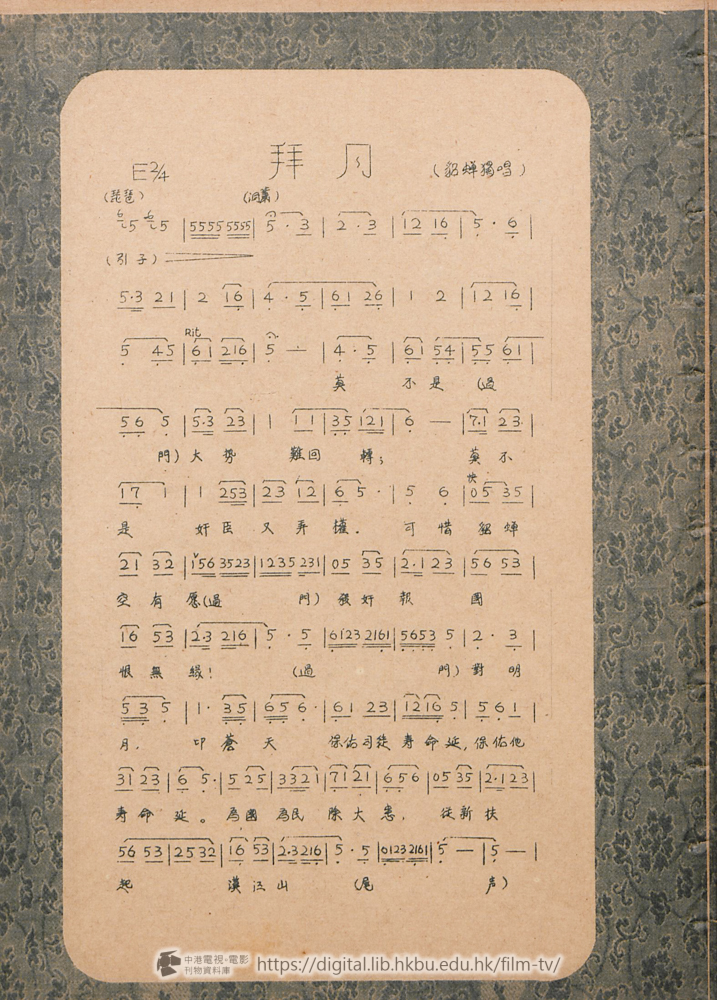 拜月
E 2/4 (貂蟬獨唱)
(琵琶) (洞簫)
6 5 6 5 | 5555 5555 | 5 · 3 | 2 · 3 | 12 16 | 5 · 6 |
(引子)
5·3 21 | 2 16 | 4 · 5 | 61 26 | 1 2 | 12 16 |
Rit
5 45 | 61 216 | 5 — | 4 · 5 | 61 54 | 55 61 |
莫 不是 (過
56 5 | 5·3 23 | 1 11 | 35 121 | 6 — | 7·1 23 |
門) 大 势 難回 轉; 莫 不
快
17 1 | 1 253 | 23 12 | 65 · | 5 6 | 05 35 |
是 奸臣 又 弄 權. 可 惜 貂 蟬
21 32 | 156 3523 | 1235 231 | 05 35 | 2·123 | 56 53 |
空 有 愿 (過 門) 殺 奸 報 國
16 53 | 2·3 216 | 5 · 5 | 6123 2161 | 5653 5 | 2 · 3 |
恨 無 緣! (過 門) 對 明
53 5 | 1 · 35 | 65 6 · | 61 23 | 1216 5 | 56 1 |
月. 叩 蒼 天 保佑司徒 寿 命 延, 保佑他
31 23 | 6 5 · | 5 25 | 3321 | 7121 | 656 | 05 35 | 2·123 |
寿 命 延 。 為國 為民 除 大 害, 從新 扶
56 53 | 2532 | 16 53 | 2·3 216 | 5 · 5 | 6123 2161 | 5 — | 5 — |
起 漢江山 (尾 声)
中港電視·電影
刊物資料庫 https://digital.lib.hkbu.edu.hk/film-tv/